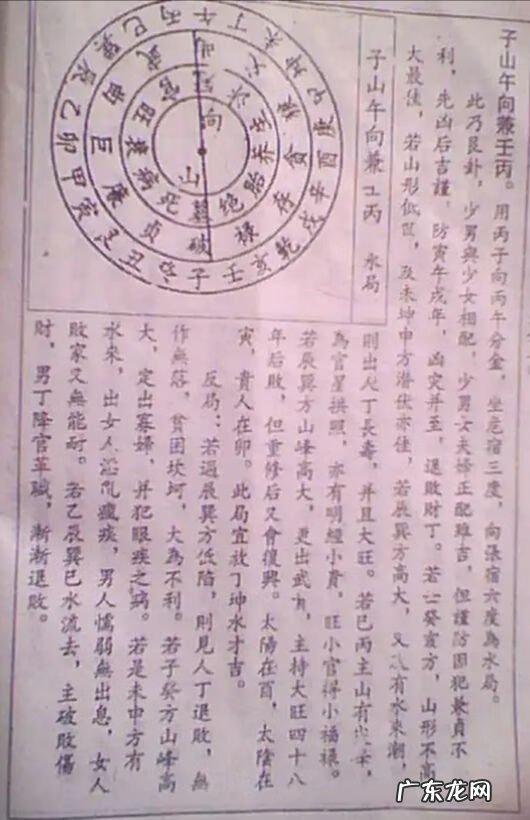 子山午向兼壬丙。用丙子向丙午分金，坐危宿三度，向張宿六度為水局。
此乃艮卦，少男與少女相配，少男女夫婦正配雖吉，但謹防因犯兼貞不
利，先凶后吉謹。防寅午戌年，凶灾并至，退敗財丁。若壬癸亥方，山形不高
大最佳，若山形低，及未坤申方潜伏亦佳，若辰巽方高大，又有水来潮，
則出人丁長壽，并且大旺。若巳丙主山有，
為官星拱照，亦有明經小貴，旺小官得小福禄。
若辰巽方山峰高大，更出武，主持大旺四十八
年后敗，但重修后又會復興。太陽在酉，太陰在
寅，貴人在卯。此局宜放丁坤水才吉。
反局：若遇辰巽方低陷，則見人丁退敗，無
作無落，貧困坎坷，大為不利。若子癸方山峰高
大，定出寡婦，并犯眼疾之病。若是未申方有
水来，出女人淫乱癡痰，男人懦弱無出息，女人
敗家又無能耐。若乙辰巽巳水流去，主破敗傷
財，男丁降官革職，漸漸退敗。
子山午向兼壬丙 水局
午丁未坤申庚酉辛戌乾亥壬子癸丑艮寅甲卯乙辰巽巳丙
文狼貪存禄破貞廉巨武
官旺衰病死墓绝胎养生
向
山
广东龙网